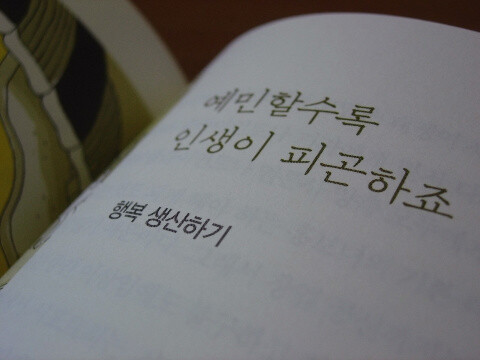 예민할수록
인생이 피곤하죠
행복 생산하기